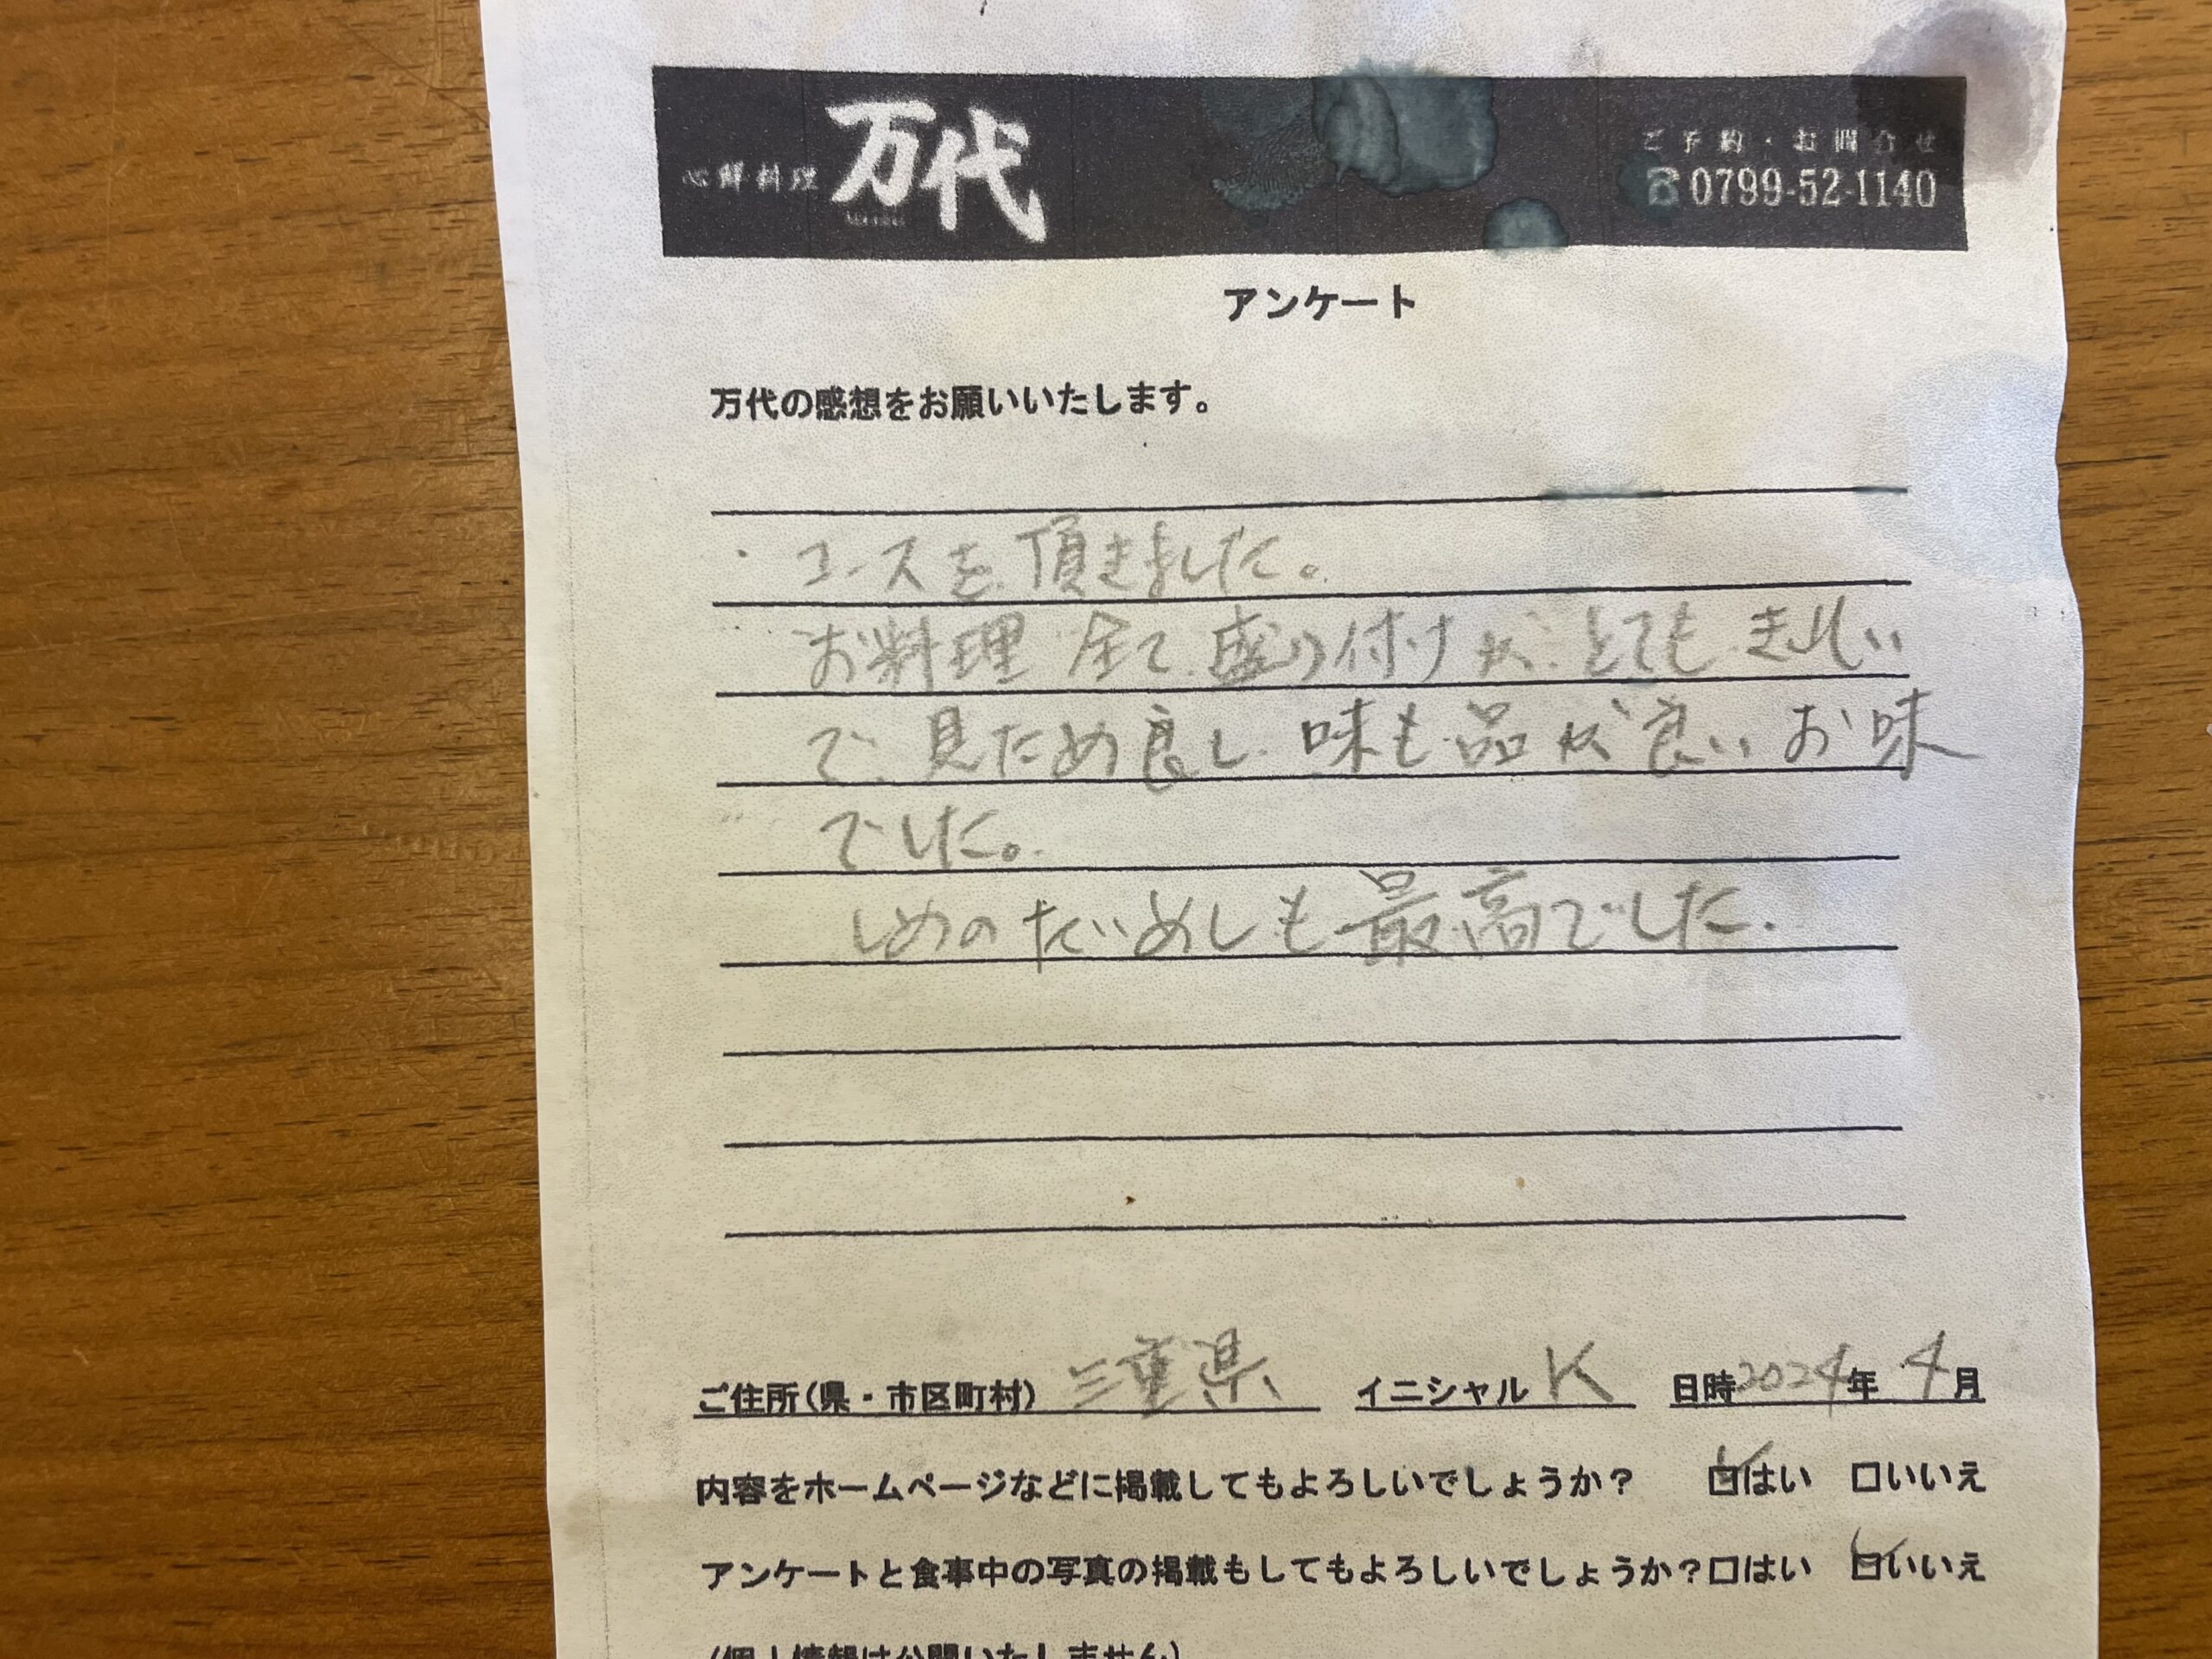 心鮮料理 万代
ご予約・お問合せ
☎0799-52-1140
アンケート
万代の感想をお願いいたします。
・コースを頂きました。
お料理 全て盛り付けが とても きれい
で 見ため良し 味も品が良い お味
でした。
しめの たいめしも最高でした.
ご住所(県・市区町村) 三重県 イニシャル K 日時2024年 4月
内容をホームページなどに掲載してもよろしいでしょうか? ☑はい □いいえ
アンケートと食事中の写真の掲載もしてもよろしいでしょうか?□はい ☑いいえ
(個人情報は公開いたしません)